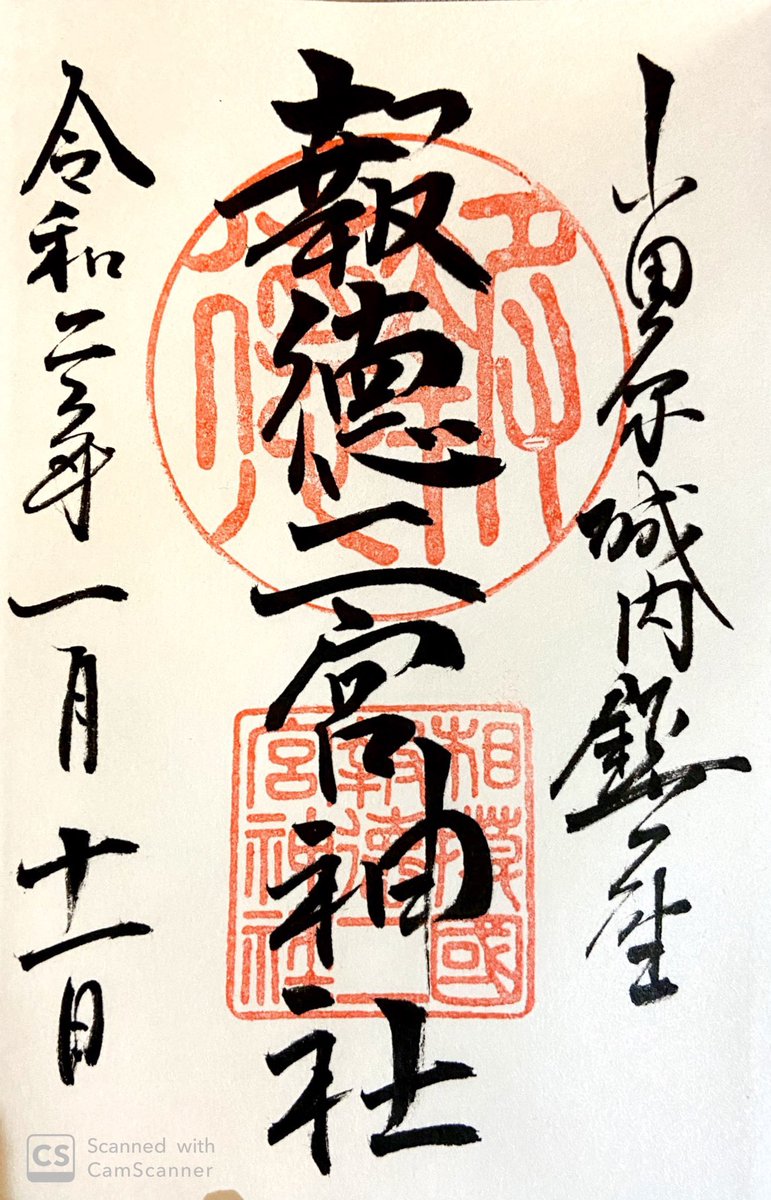 小田原城内鎮座
報徳二宮神社
令和三年一月十一日
相模國
報徳二
宮神社
CS Scanned with
CamScanner